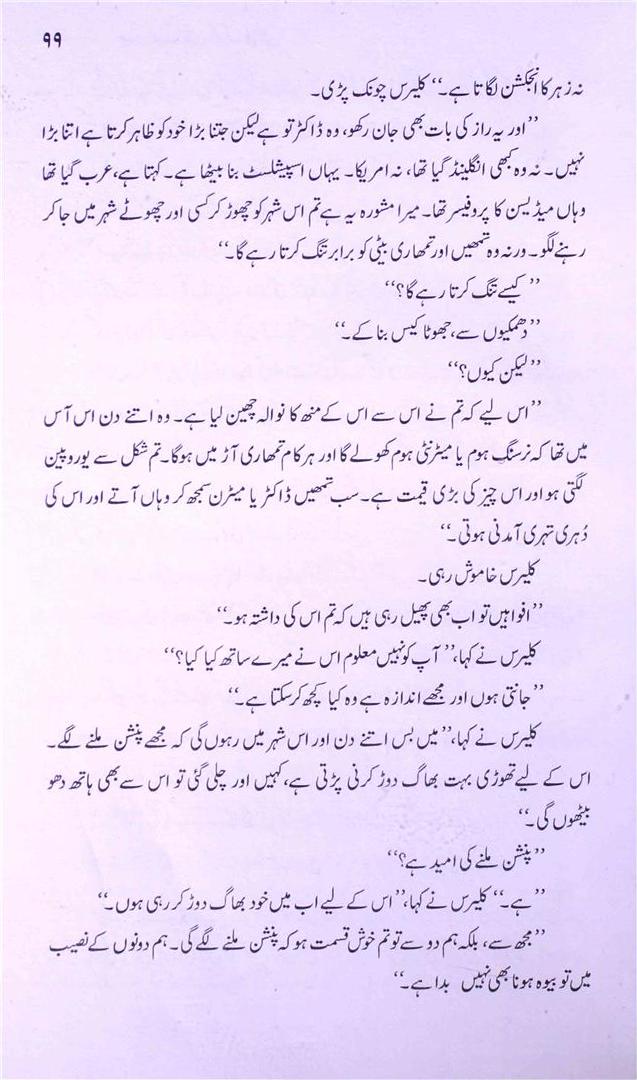 ۹۹
نہ زہر کا انجکشن لگاتا ہے۔‘‘ کلیرس چونک پڑی۔
’’اور یہ راز کی بات بھی جان رکھو، وہ ڈاکٹر تو ہے لیکن جتنا بڑا خود کو ظاہر کرتا ہے اتنا بڑا
نہیں۔ نہ وہ کبھی انگلینڈ گیا تھا، نہ امریکا۔ یہاں اسپیشلسٹ بنا بیٹھا ہے۔ کہتا ہے، عرب گیا تھا
وہاں میڈیسن کا پروفیسر تھا۔ میرا مشورہ یہ ہے تم اس شہر کو چھوڑ کر کسی اور چھوٹے شہر میں جا کر
رہنے لگو۔ ورنہ وہ تمھیں اور تمھاری بیٹی کو برابر تنگ کرتا رہے گا۔‘‘
’’کیسے تنگ کرتا رہے گا؟‘‘
’’دھمکیوں سے، جھوٹا کیس بنا کے۔‘‘
’’لیکن کیوں؟‘‘
’’اس لیے کہ تم نے اس سے اس کے منھ کا نوالہ چھین لیا ہے۔ وہ اتنے دن اس آس
میں تھا کہ نرسنگ ہوم یا میٹرنٹی ہوم کھولے گا اور ہر کام تمھاری آڑ میں ہوگا۔ تم شکل سے یوروپین
لگتی ہو اور اس چیز کی بڑی قیمت ہے۔ سب تمھیں ڈاکٹر یا میٹرن سمجھ کر وہاں آتے اور اس کی
دُہری تہری آمدنی ہوتی۔‘‘
کلیرس خاموش رہی۔
’’افواہیں تو اب بھی پھیل رہی ہیں کہ تم اس کی داشتہ ہو۔‘‘
کلیرس نے کہا، ’’آپ کو نہیں معلوم اس نے میرے ساتھ کیا کیا؟‘‘
’’جانتی ہوں اور مجھے اندازہ ہے وہ کیا کچھ کر سکتا ہے۔‘‘
کلیرس نے کہا، ’’میں بس اتنے دن اور اس شہر میں رہوں گی کہ مجھے پنشن ملنے لگے۔
اس کے لیے تھوڑی بہت بھاگ دوڑ کرنی پڑتی ہے، کہیں اور چلی گئی تو اس سے بھی ہاتھ دھو
بیٹھوں گی۔‘‘
’’پنشن ملنے کی امید ہے؟‘‘
’’ہے۔‘‘ کلیرس نے کہا، ’’اس کے لیے اب میں خود بھاگ دوڑ کر رہی ہوں۔‘‘
’’مجھ سے، بلکہ ہم دو سے تو تم خوش قسمت ہو کہ پنشن ملنے لگے گی۔ ہم دونوں کے نصیب
میں تو بیوہ ہونا بھی نہیں بدا ہے۔‘‘